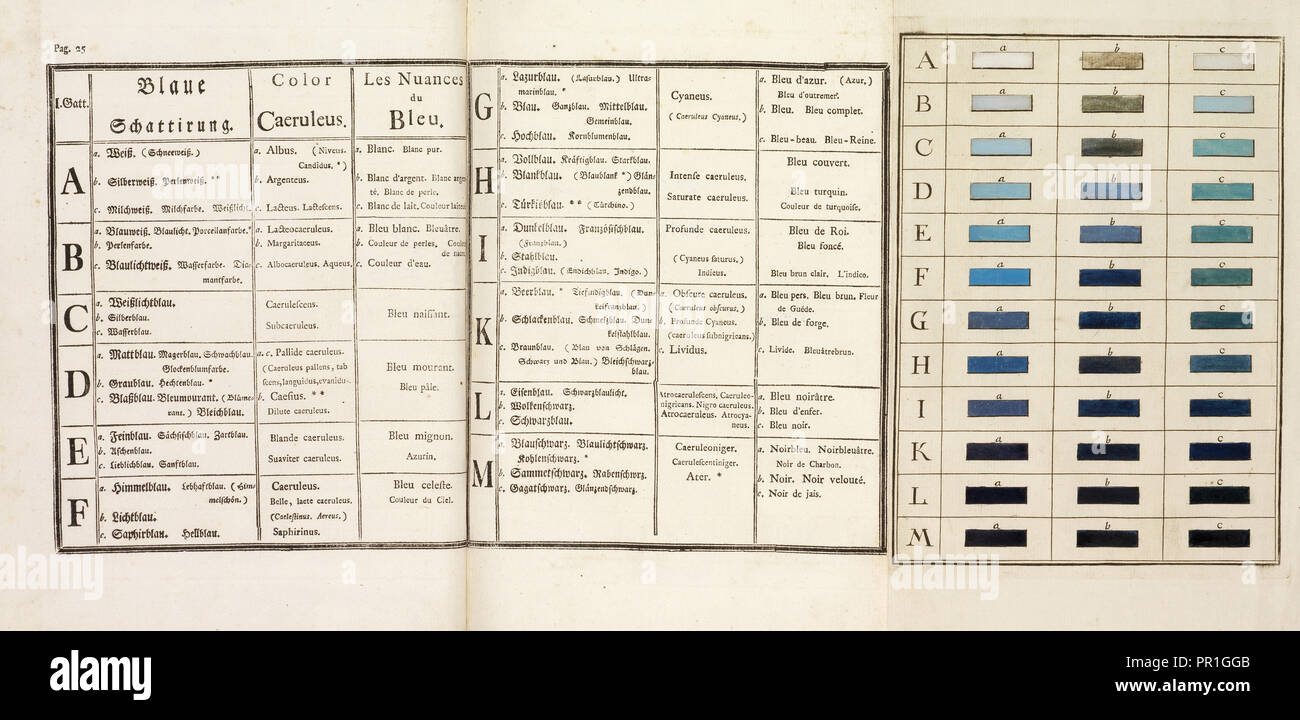 Pag. 25
I. Gatt.
Blaue
Schattirung.
Color
Caeruleus.
Les Nuances
du
Bleu.
A
a. Weiß. (Schneeweiß.)
b. Silberweiß. Perlenweiß. **
c. Milchweiß. Milchfarbe. Weißlicht.
a. Albus. (Niveus.
Candidus. *)
b. Argenteus.
c. Lacteus. Lactescens.
a. Blanc. Blanc pur.
b. Blanc d'argent. Blanc argen
té. Blanc de perle.
c. Blanc de lait. Couleur
B
a. Blauweiß. Blaulicht. Porcellanfarbe. *
b. Perlenfarbe.
c. Blaulichtweiß. Wasserfarbe. Dia-
mantfarbe.
a. Lacteocaeruleus.
b. Margaritaceus.
c. Albocaeruleus. Aqueus.
a. Bleu blanc. Bleuâtre.
b. Couleur de perles.
c. Couleur d'eau.
C
a. Weißlichtblau.
b. Silberblau.
c. Wasserblau.
Caerulescens.
Subcaeruleus.
Bleu naissant.
D
a. Mattblau. Magerblau. Schwachblau.
Glockenblumfarbe.
b. Graublau. Hechtenblau. *
c. Blaßblau. Bleumourant. (Blüme-
rant.) Bleichblau.
a. c. Pallide caeruleus.
(Caeruleus pallens, tab
scens, languidus, evanidus.
b. Caesius. **
Dilute caeruleus.
Bleu mourant.
Bleu pâle.
E
a. Feinblau. Sächsischblau. Zartblau.
b. Aschenblau.
c. Lieblichblau. Sanftblau.
Blande caeruleus.
Suaviter caeruleus.
Bleu mignon.
Azurin.
F
a. Himmelblau. Lebhaftblau. (Him-
melschön.)
b. Lichtblau.
c. Saphirblau. Hellblau.
Caeruleus.
Belle, laete caeruleus.
(Caelestinus. Aereus.)
Saphirinus.
Bleu celeste.
Couleur du Ciel.
G
a. Lazurblau. (Lasurblau.) Ultra-
marinblau. *
b. Blau. Ganzblau. Mittelblau.
Gemeinblau.
c. Hochblau. Kornblumenblau.
Cyaneus.
(Caeruleus Cyaneus.)
a. Bleu d'azur. (Azur.)
Bleu d'outremer.
b. Bleu. Bleu complet.
c. Bleu-beau. Bleu-Reine.
H
a. Vollblau. Kräftigblau. Starkblau.
b. Blankblau. (Blaublank *) Glän-
zendblau.
c. Türkisblau. ** (Türchino.)
Intense caeruleus.
Saturate caeruleus.
Bleu couvert.
Bleu turquin.
Couleur de turquoise.
I
a. Dunkelblau. Französischblau.
(Franzblau.)
b. Stahlblau.
c. Indigblau. (Endichblau. Indigo.)
Profunde caeruleus.
(Cyaneus saturus.)
Indicus.
Bleu de Roi.
Bleu foncé.
Bleu brun clair. L'indico.
K
a. Beerblau. * Tiefindigblau. (Dun
kelfranzblau.)
b. Schlackenblau. Schmelzblau. Dun
kelstahlblau.
c. Braunblau. (Blau von Schlägen.
Schwarz und Blau.) Bleichschwarz-
blau.
a. Obscure caeruleus.
(Caeruleus obscurus.)
b. Profunde Cyaneus.
(caeruleus subnigricans.)
c. Lividus.
a. Bleu pers. Bleu brun. Fleur
de Guéde.
b. Bleu de forge.
c. Livide. Bleuâtrebrun.
L
a. Eisenblau. Schwarzblaulicht.
b. Wolkenschwarz.
c. Schwarzblau.
Atrocaerulescens, Caeruleo-
nigricans. Nigro caeruleus.
Atrocaeruleus. Atrocya-
neus.
a. Bleu noirâtre.
b. Bleu d'enfer.
c. Bleu noir.
M
a. Blauschwarz. Blaulichtschwarz.
Kohlenschwarz. *
b. Sammetschwarz. Rabenschwarz.
c. Gagatschwarz. Glänzendschwarz.
Caeruleoniger.
Caerulescentiniger.
Ater. *
a. Noirbleu. Noirbleuâtre.
Noir de Charbon.
b. Noir. Noir velouté.
c. Noir de jais.
A a b c
B a b c
C a b c
D a b c
E a b c
F a b c
G a b c
H a b c
I a b c
K a b c
L a b c
M a b c
alamy
Image ID: PR1GGB
www.alamy.com